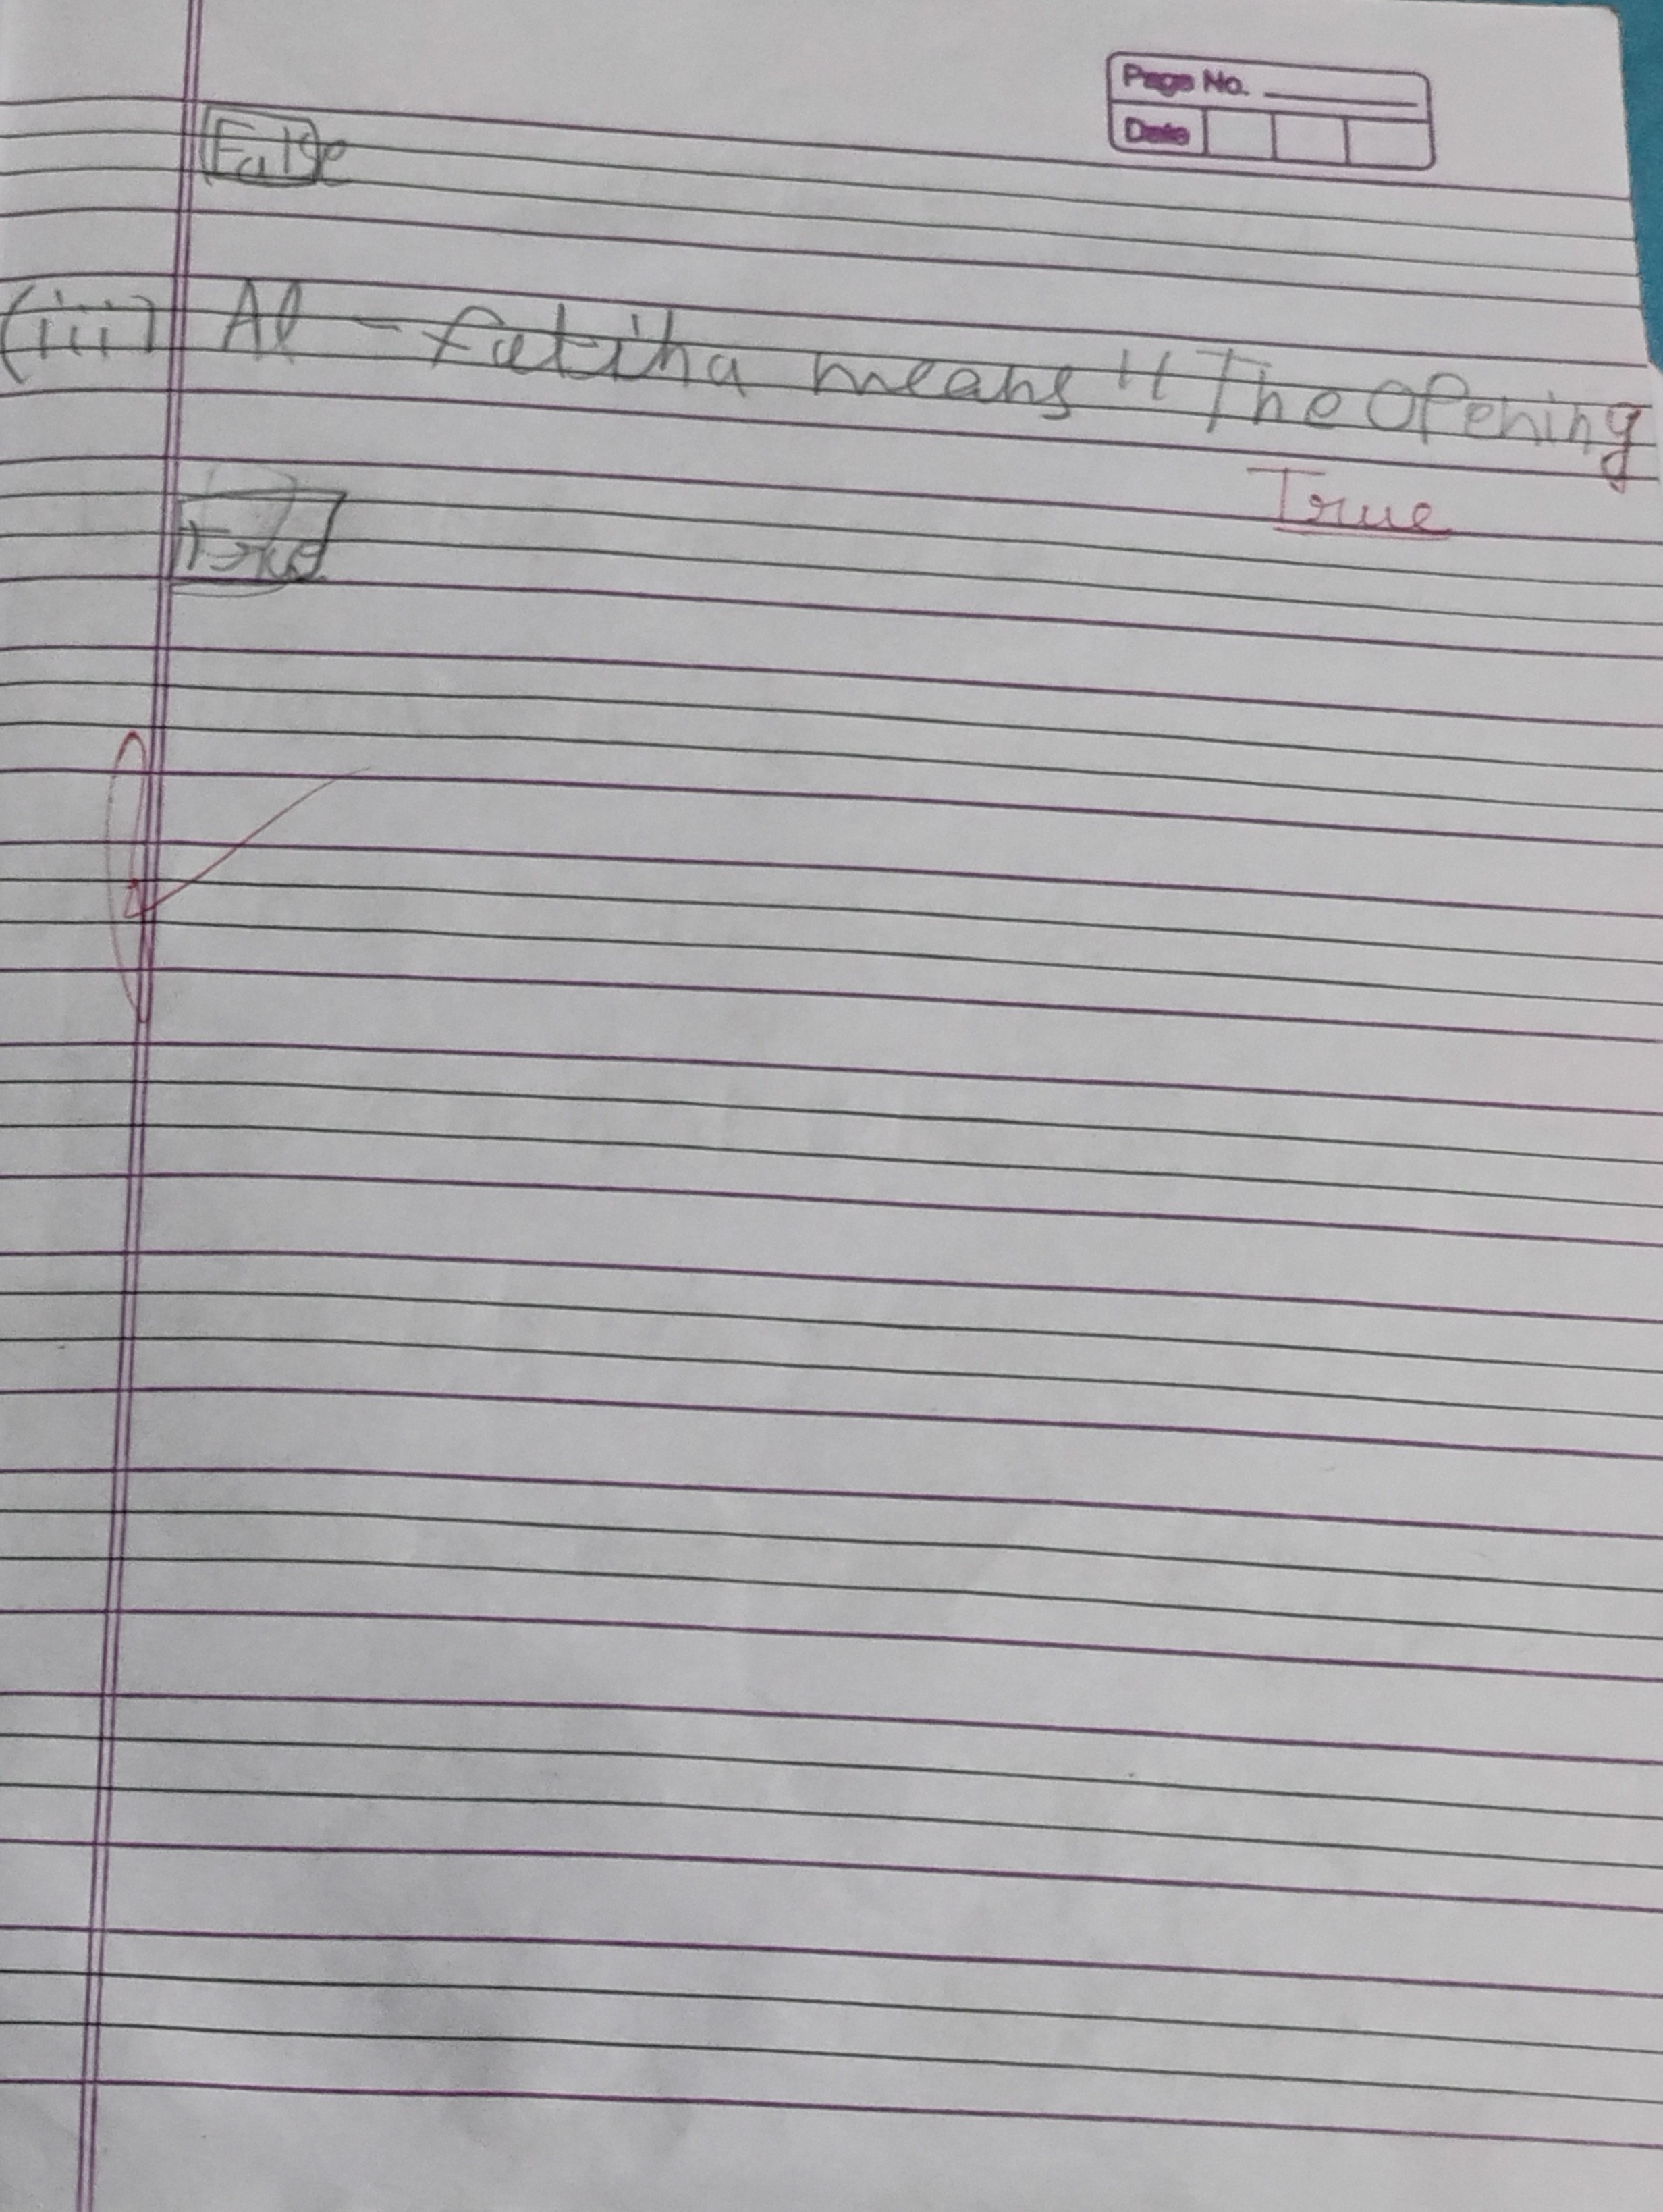 Page No.
Date
False
(iii) Al - fatiha means "The Opening
True
True